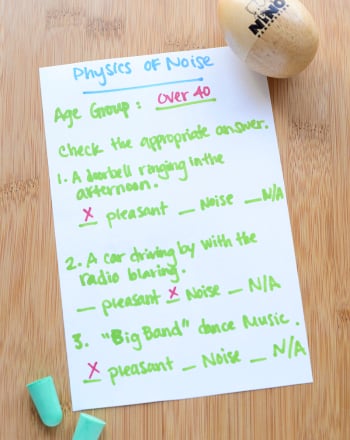 NINO
Physics of Noise
Age Group: Over 40
Check the appropriate answer.
1. A doorbell ringing in the
afternoon.
X pleasant _ Noise _ N/A
2. A car driving by with the
radio blaring.
_ pleasant X Noise _ N/A
3. "Big Band" dance Music.
X pleasant _ Noise _ N/A